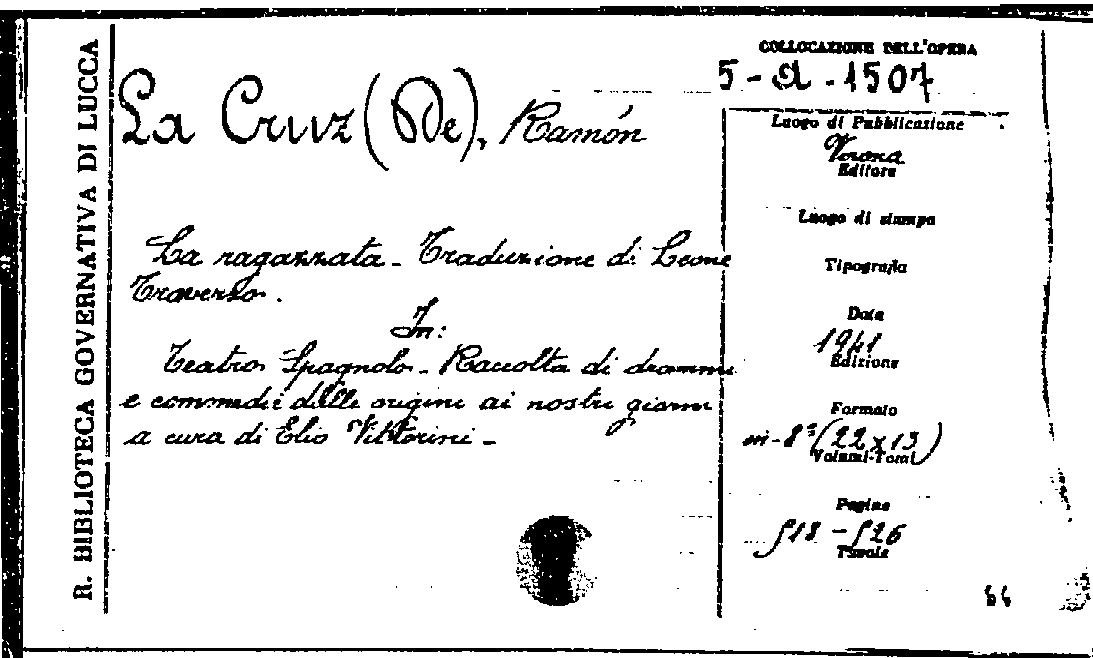 R. BIBLIOTECA GOVERNATIVA DI LUCCA
La Cruz (De), Ramón
La ragazzata - Traduzione di Leone
Traverso.
In:
Teatro Spagnolo - Raccolta di drammi
e commedie dalle origini ai nostri giorni
a cura di Elio Vittorini -
COLLOCAZIONE DELL'OPERA
5 - A - 1507
Luogo di Pubblicazione
Verona
Editore
Luogo di stampa
Tipografia
Data
1941
Edizione
Formato
in-8º (22 x 13)
Volumi-Tomi
Pagine
518 - 526
Tavole
66